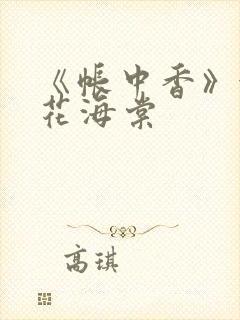 《帐中香》
花海棠
高琪